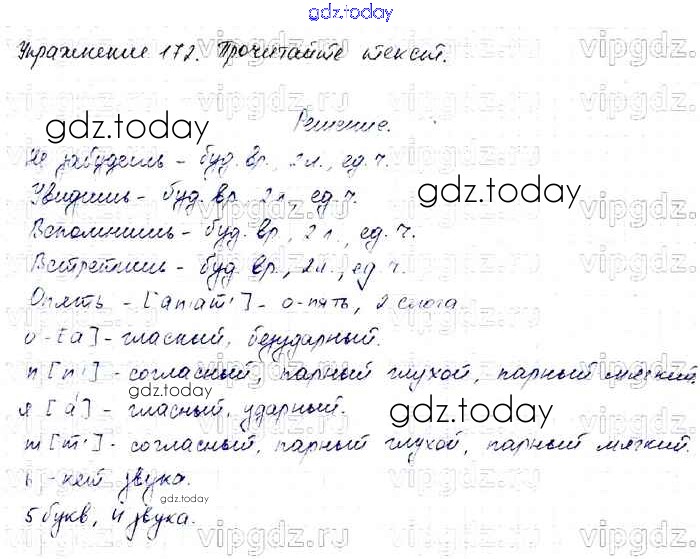 gdz.today
Упражнение 172. Прочитайте текст.
Решение.
gdz.today
Не забудешь - буд. вр., 2 л., ед. ч.
Увидишь - буд. вр. 2 л. ед. ч.
gdz.today
Вспомнишь - буд. вр., 2 л., ед. ч.
Встретишь - буд. вр., 2 л., ед. ч.
Опять - [ап'ат'] - о-пять, 2 слога
о - [а] - гласный, безударный.
п [п'] - согласный, парный глухой, парный мягкий
я [а́] - гласный, ударный.
gdz.today
gdz.today
т [т'] - согласный, парный глухой, парный мягкий.
ь - нет звука.
gdz.today
5 букв, 4 звука.
vipgdz.ru